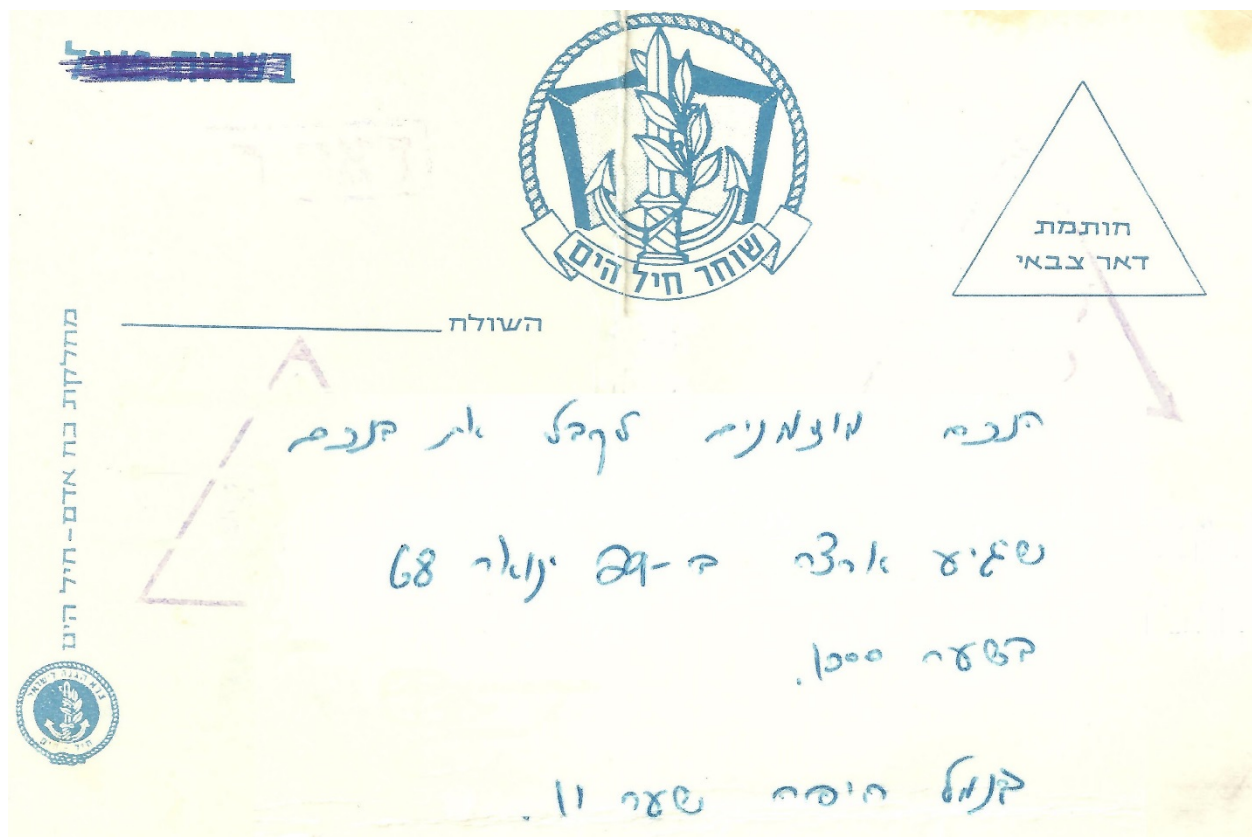 שוחר חיל הים
חותמת
דאר צבאי
השולח
מחלקת כח אדם-חיל הים
צבא הגנה לישראל
חיל-הים
הנכם מוזמנים לקבל את בנכם
שיגיע ארצה ב-29 ינואר 68
בשעה 1000.
בנמל חיפה שער 11.